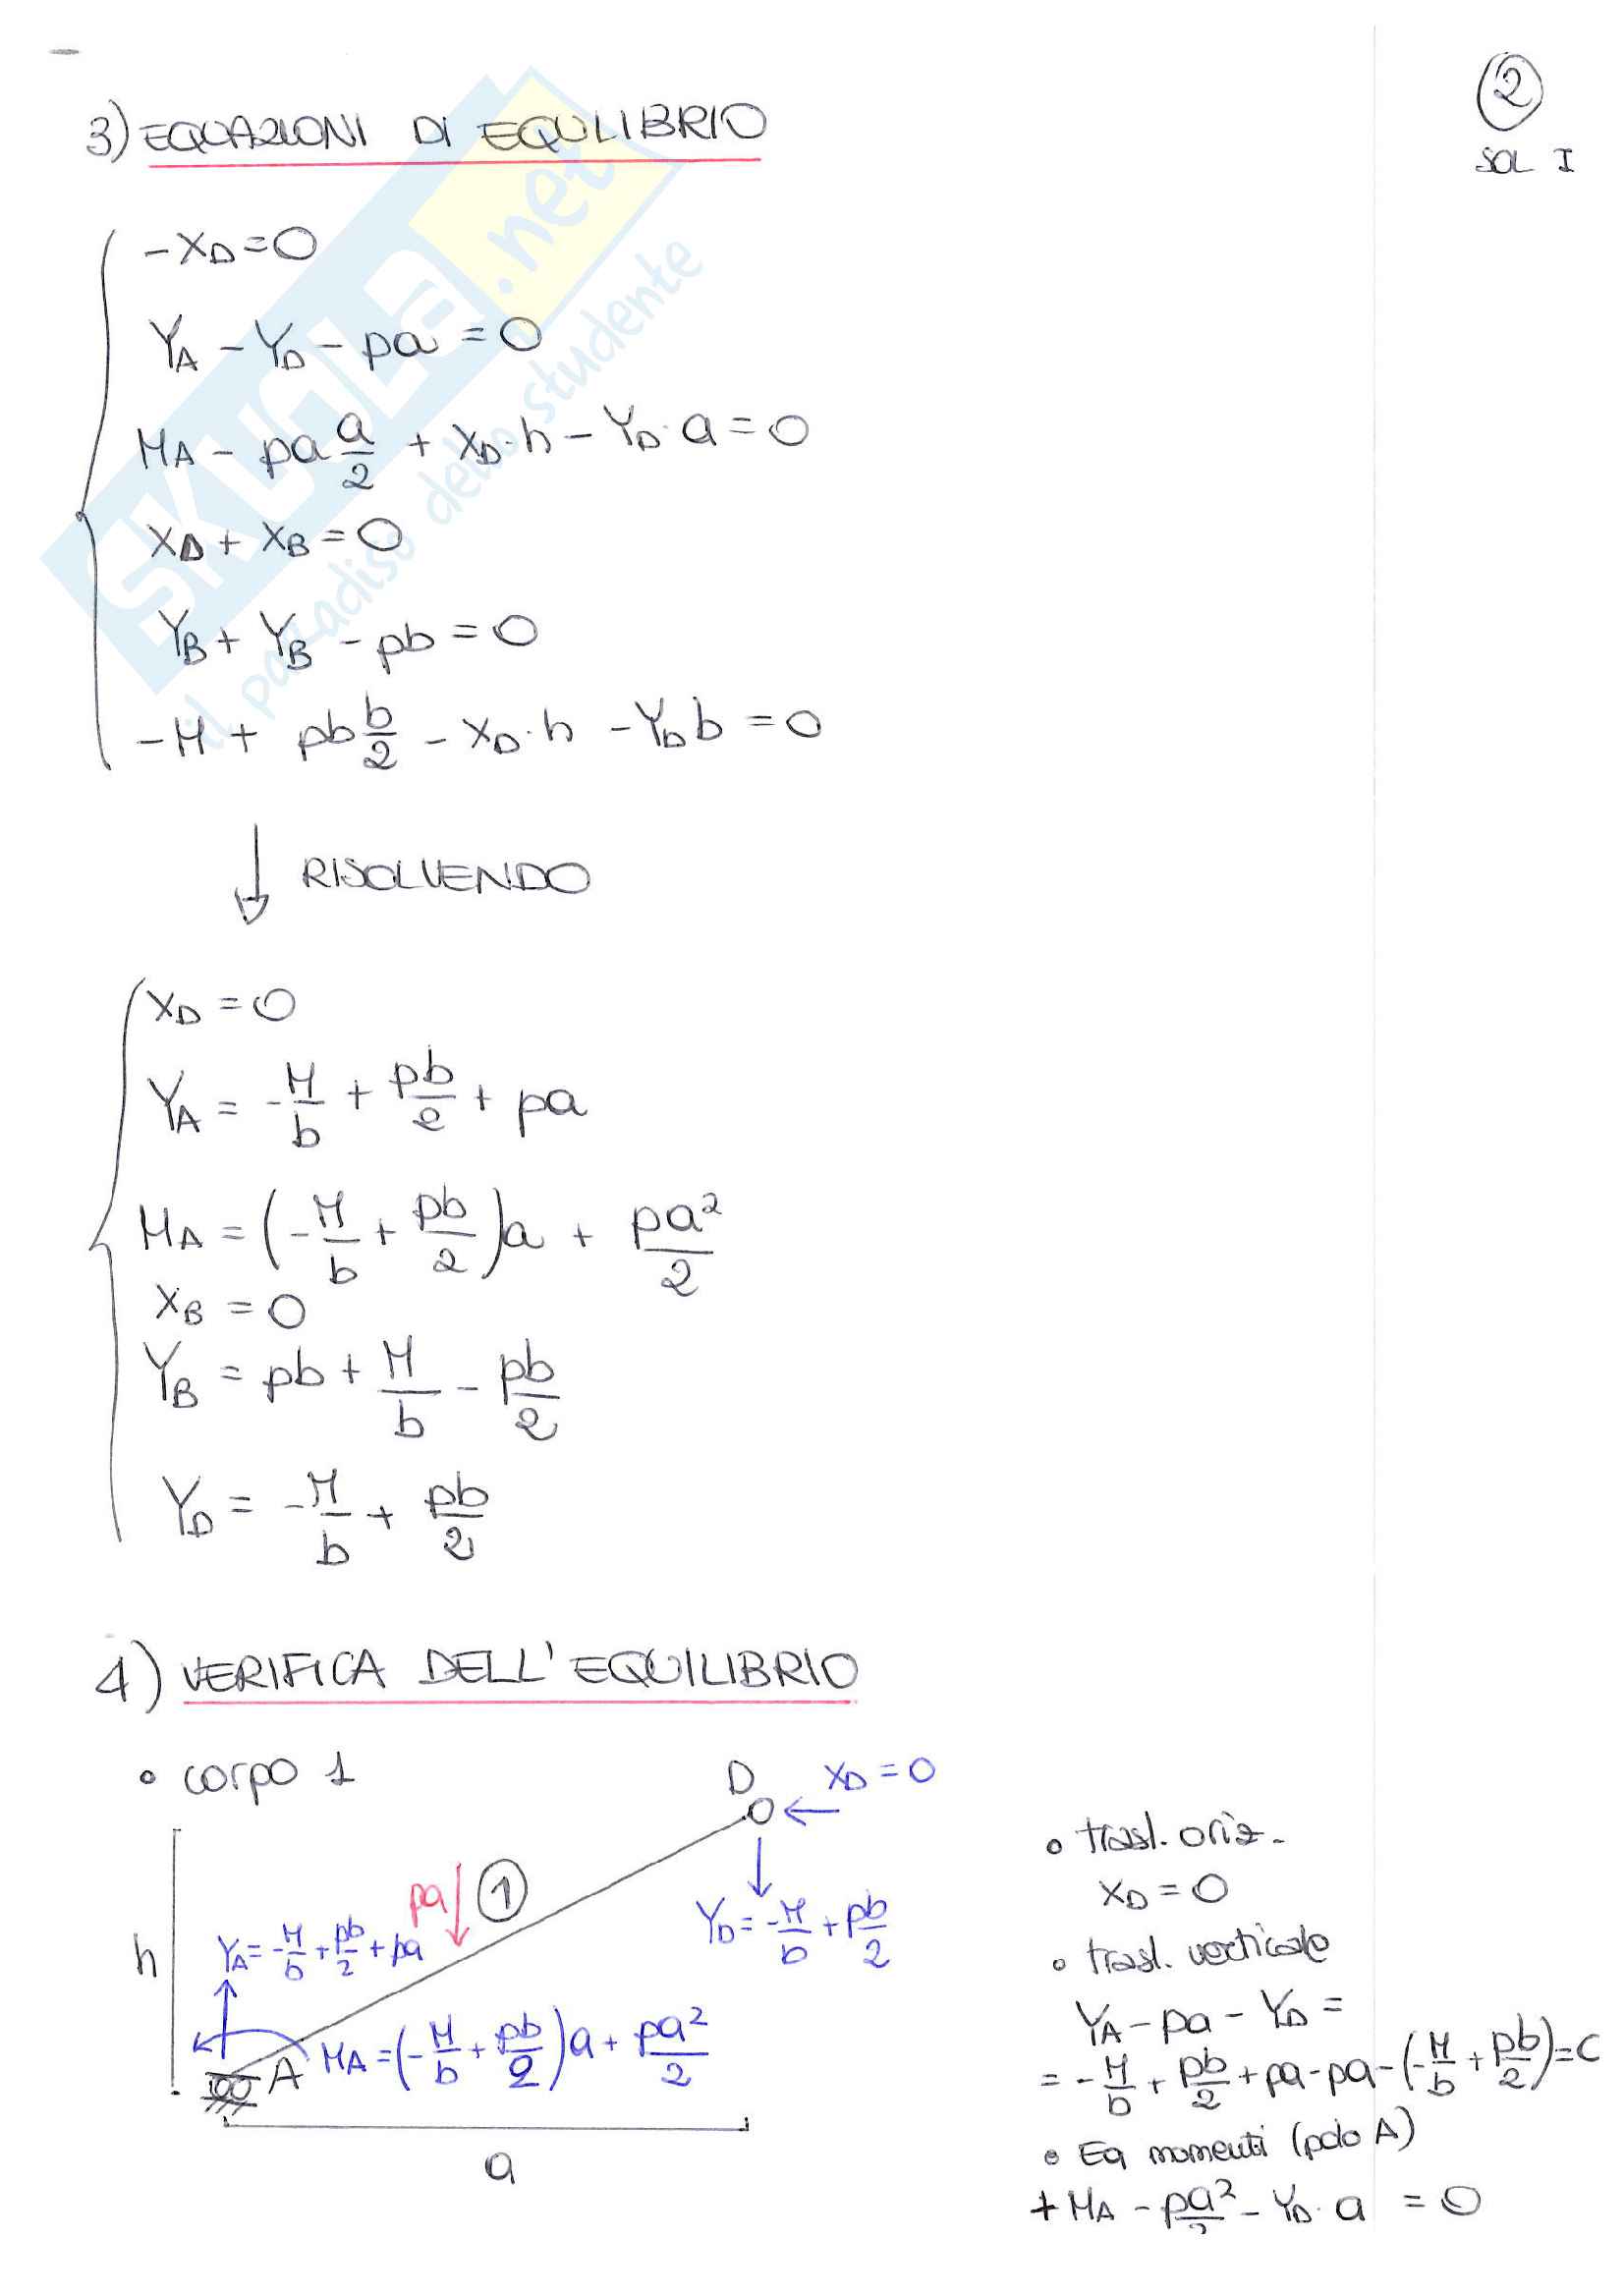 2
SOL I
3) EQUAZIONI DI EQULIBRIO
-XD=0
YA - YD - pa = 0
MA - pa a/2 + XD·h - YD·a = 0
XD + XB = 0
YB + YB - pb = 0
-M + pb b/2 - XD·h - YD b = 0
RISOLVENDO
XD = 0
YA = -M/b + pb/2 + pa
MA = (-M/b + pb/2)a + pa²/2
XB = 0
YB = pb + M/b - pb/2
YD = -M/b + pb/2
4) VERIFICA DELL'EQUILIBRIO
• corpo 1
D
XD = 0
pa
1
YD = -M/b + pb/2
h
YA = -M/b + pb/2 + pa
A
MA = (-M/b + pb/2)a + pa²/2
a
• trasl. oriz.
XD = 0
• trasl. verticale
YA - pa - YD =
= -M/b + pb/2 + pa - pa - (-M/b + pb/2) = C
• Eq momenti (polo A)
+ MA - pa²/2 - YD·a = 0
SKUOLA.net
il paradiso dello studente